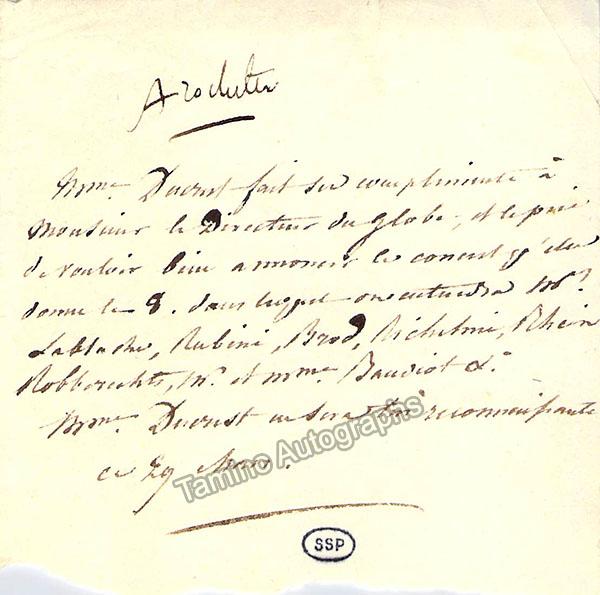 Mme. Ducrest fait ses compliments à
Monsieur le Directeur du Globe, et le prie
de vouloir bien annoncer le concert qu'elle
donne le 8. dans lequel on entendra Mrs.
Lablache, Rubini, Brod, Richelmi, Rhein
Robberechts, Mr. et Mme. Baudiot &.
Mme. Ducrest en sera très reconnaissante
ce 29 Mars.
Tamino Autographs
SSP